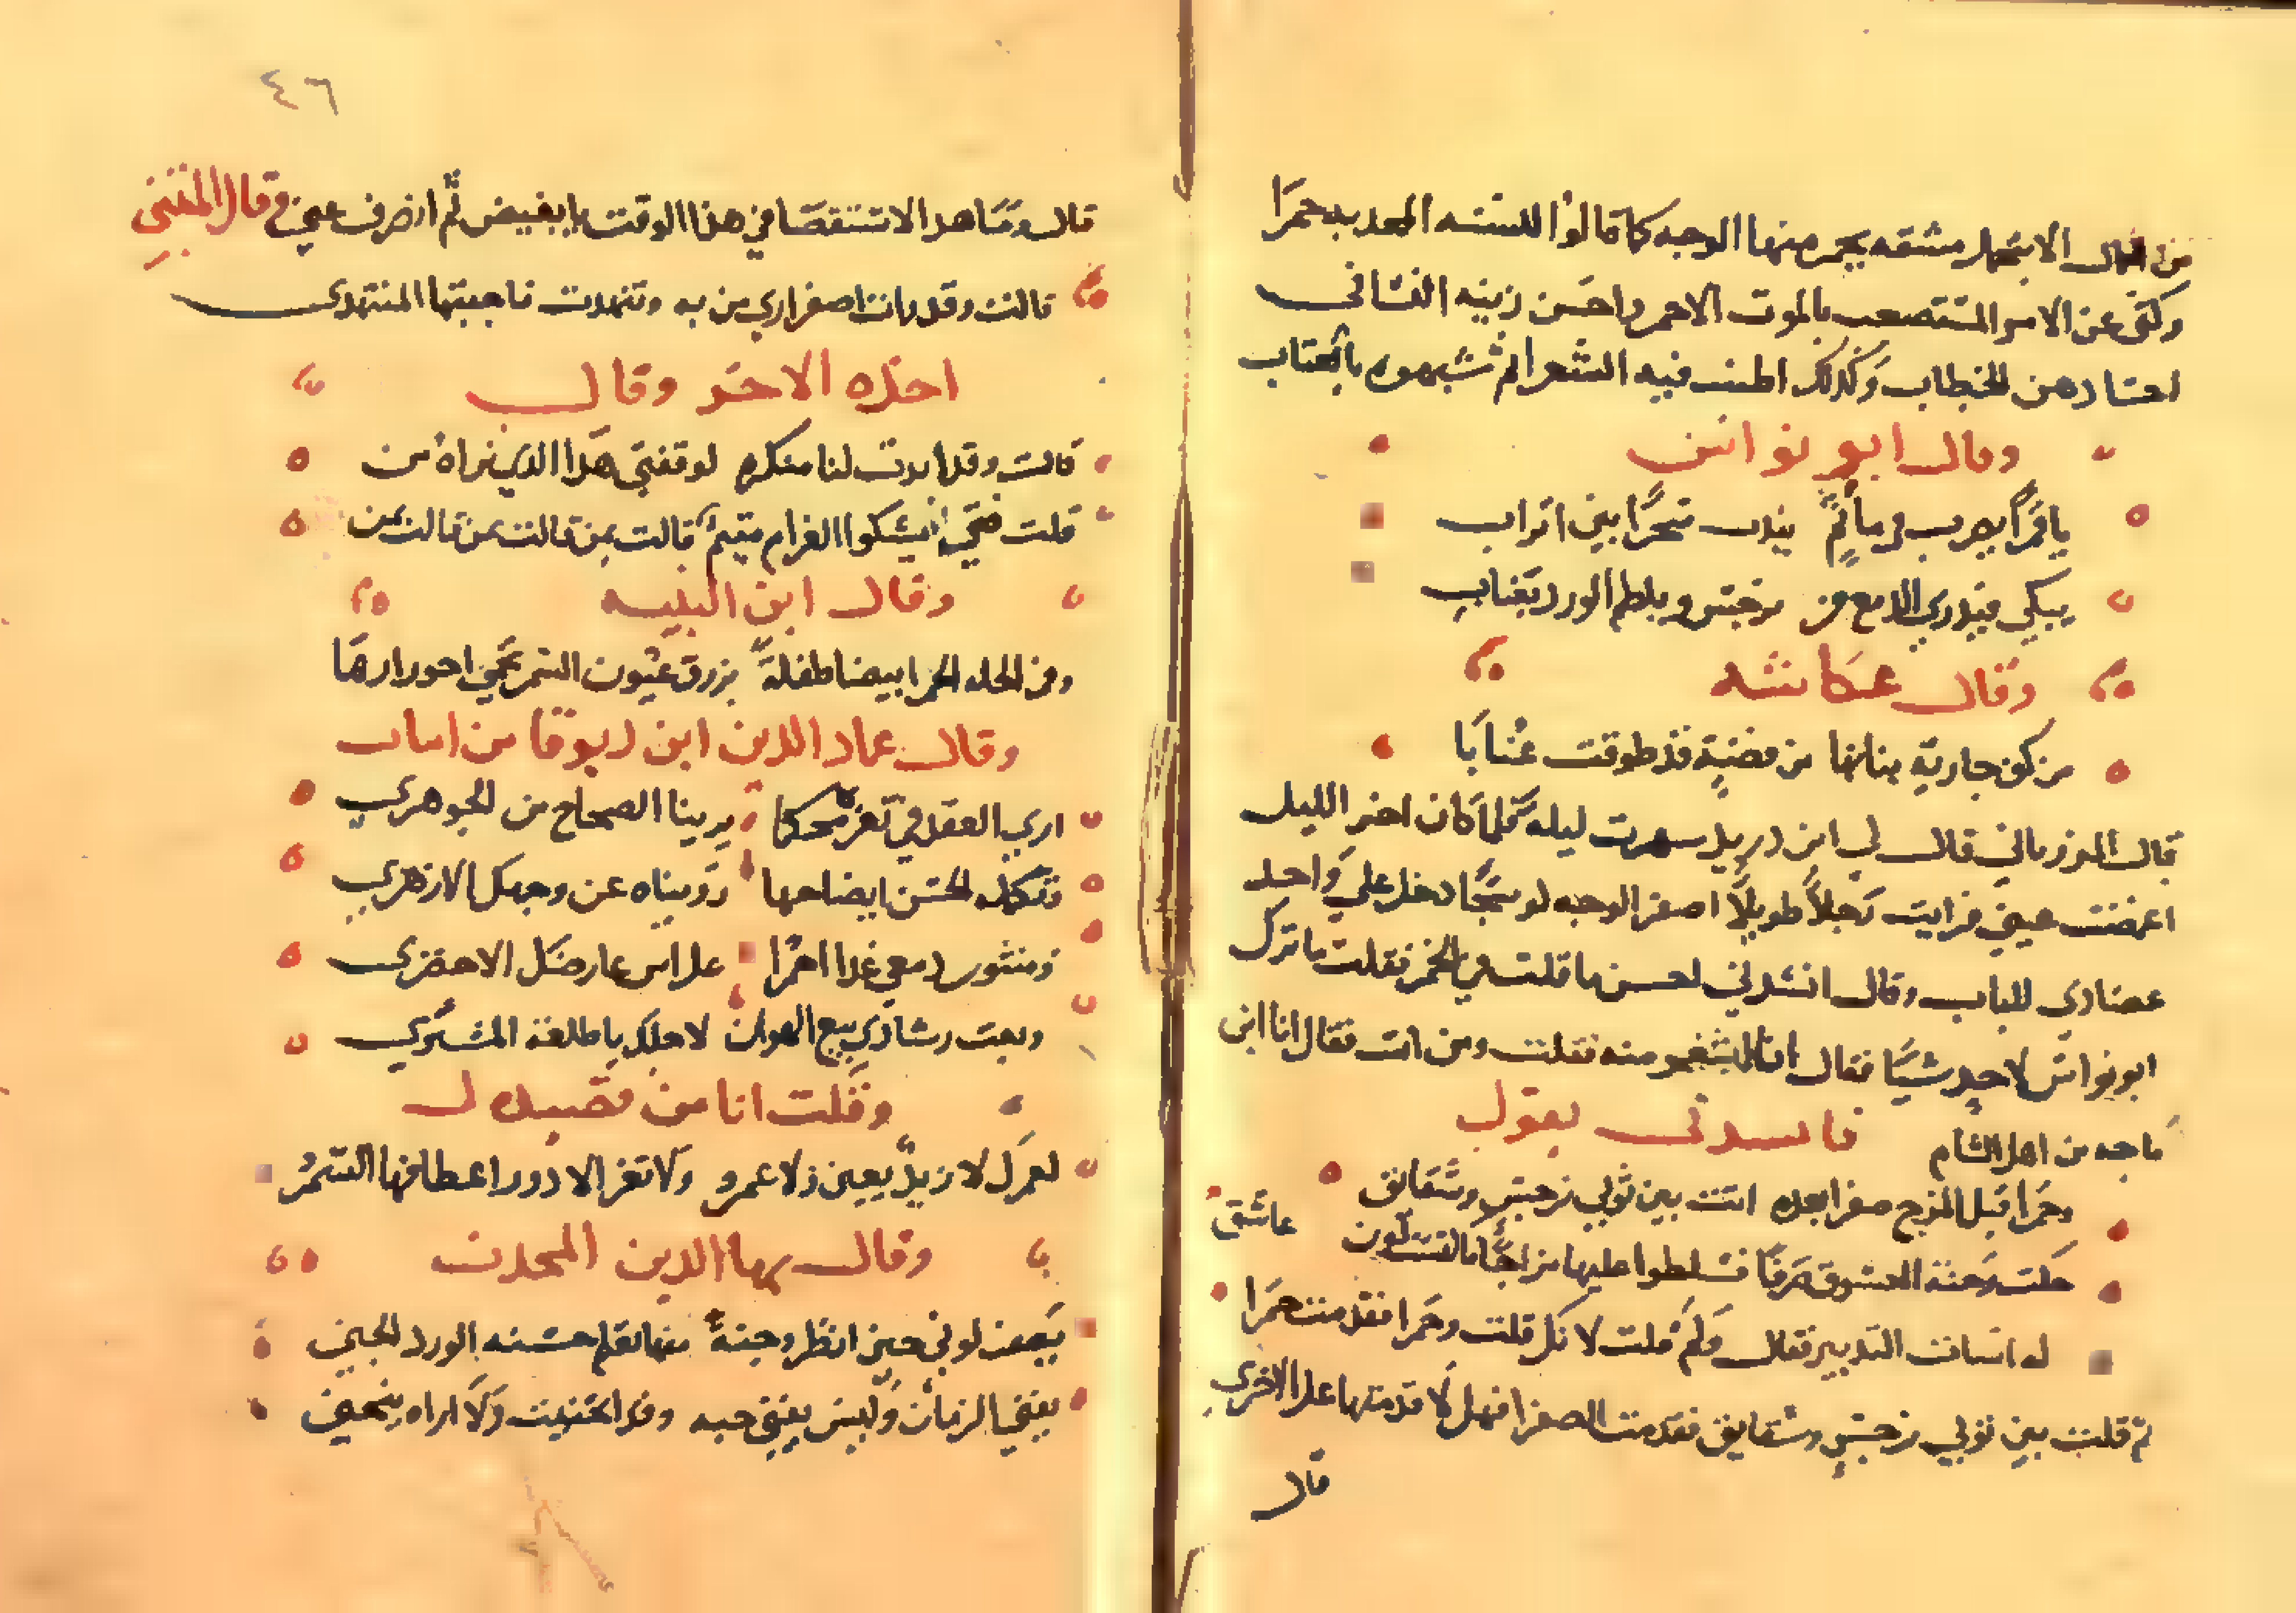 من انهال الابتهال مشقه يحمر منها الوجه كما قالوا للسنه المجدبه حمرا
وكنى عن الامر المستصعب بالموت الاحمر واحسن زينه الغشا فى
اعتمادهن الخطاب وكذلك اطنب فيه الشعرا ثم شبهوه بالعناب
وقال ابو نواس
يا قمرا ابصرت في مأتم يندب شجرا بين اتراب
يبكي فيذري الدمع من نرجس ويلطم الورد بعناب
وقال عكاشه
من كف جارية بنانها من فضة قد طوقت عنابا
قال المرزباني قال لي ابن دريد سهرت ليله فلما كان اخر الليل
اغمضت عيني فرايت رجلا طويلا اصفر الوجه كوسجا دخل علي واخد
عضادي الباب وقال انشدني احسن ما قلت في الخمر فقلت ما ترك
ابو نواس لاحد شيا فقال انا اشعر منه فقلت ومن انت فقال انا ابن
ناجيه من اهل الشام فانشدنى يقول
وحمرا قبل المزج صفرا بعده اتت بين ثوبي نرجس وشقائق
حكت وجنة المعشوق صرفا فسلطوا عليها مزاجا فاكتست لون عاشق
له اسات التدبير فقال ولم قلت لانك قلت وحمرا فقدمت حمرا
ثم قلت بين ثوبي نرجس وشقايق فقدمت الصفرا فهل لا قدمتها على الاخرى
قال
٤٦
قال وما هدا الاستنقصا في هذا الوقت يا بغيض ثم انصرف عني قال المتنبي
قالت وقد رات اصفراري من به وتنهدت فاجبتها المنتهدى
اخذه الاخر وقال
قالت وقد ابدت لنا منكره لوقفتي هدا الذي نراه من
قلت فتى يشكوا الغرام متيم قالت بمن قالت بمن قالت بمن
وقال ابن النبيه
ومن الحله الحمرا بيضا طفلة بزرق عيون السمر يحمي احورارها
وقال عماد الدين ابن دبوقا من ابيات
ارى العقد في ثغره محكما يرينا الصحاح من الجوهري
وتكمله الحسن ايضاحها رويناه عن وجهك الازهري
ومنثور دمعي غدا احمرا على اس عارضك الاخضري
وبعت رشادي بيع الهوان لاجلك يا طلعة المشتري
وقلت انا من قصيده لـ
لعمرك لا زيد يعين ولا عمرو ولا ثغر الا دور اعطافها السمر
وقال بها الدين المحدث
يصفر لوني حين انظر وجنة منها تعلم حسنه الورد الجني
يفني الزمان وليس يفنى حبه وقد اختفيت ولا اراه ينحني